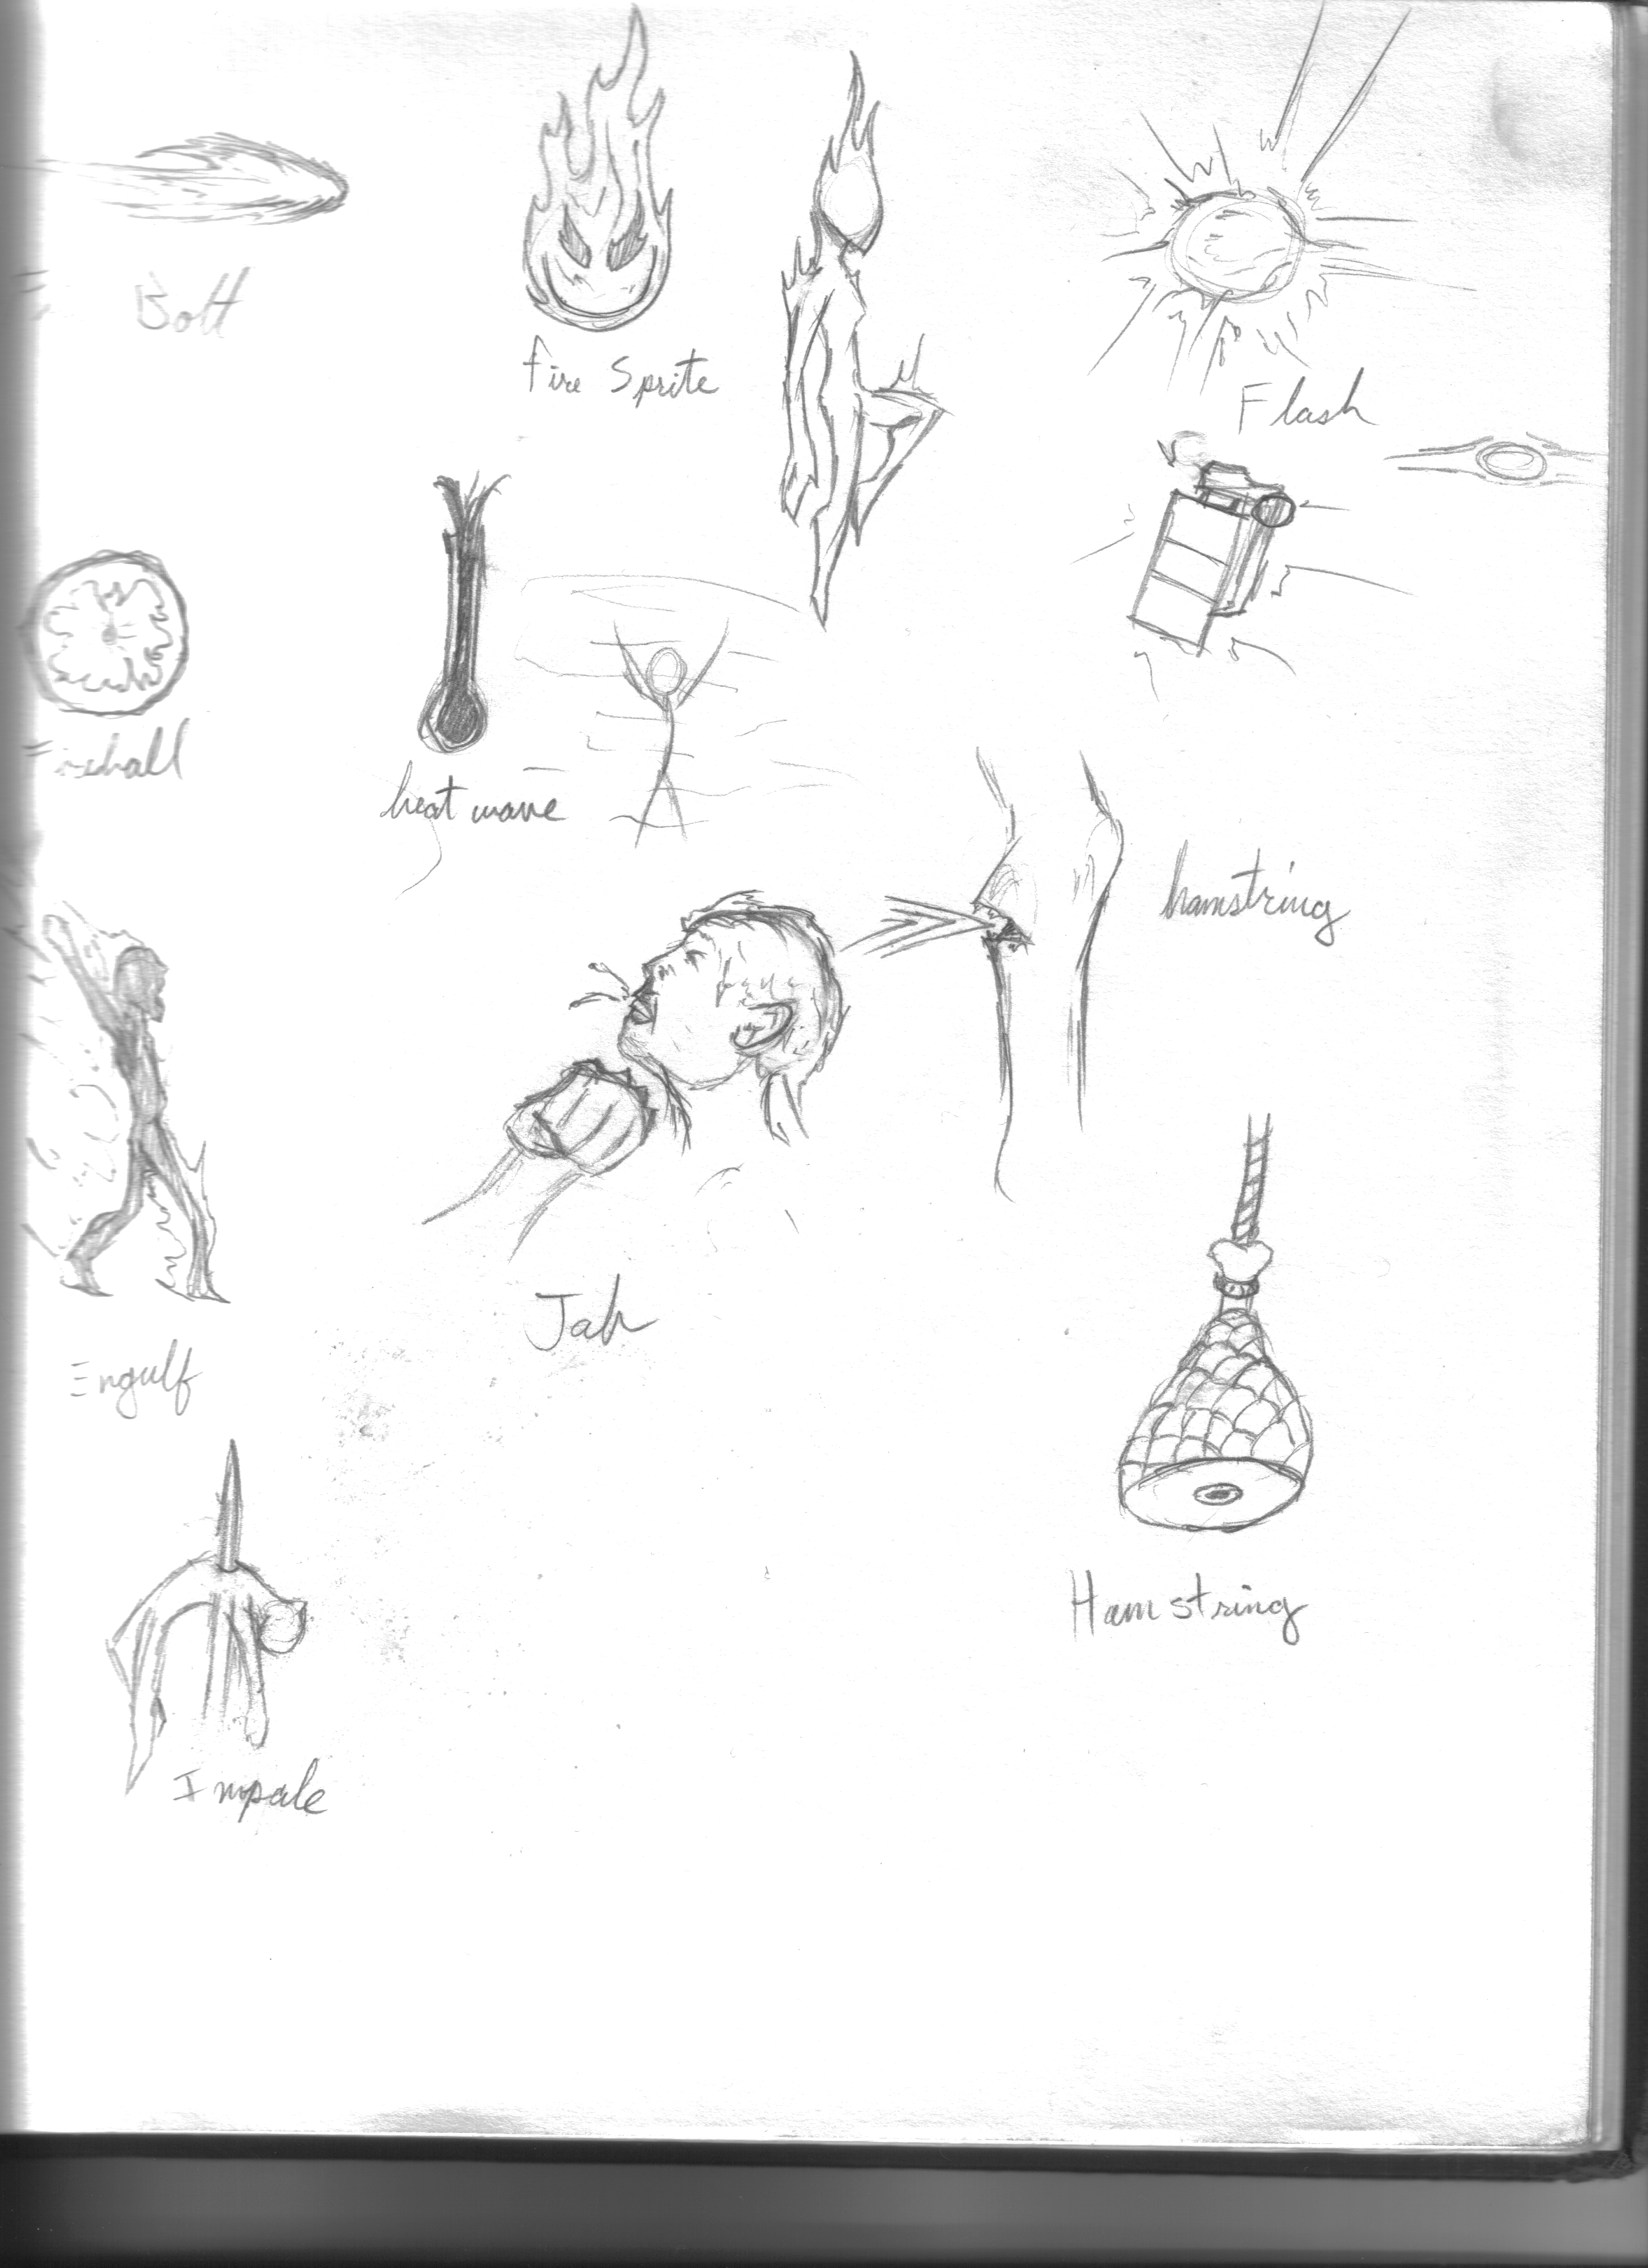 Bolt
fire Sprite
Flash
Fireball
heat wave
hamstring
Jab
Engulf
Ham string
Impale